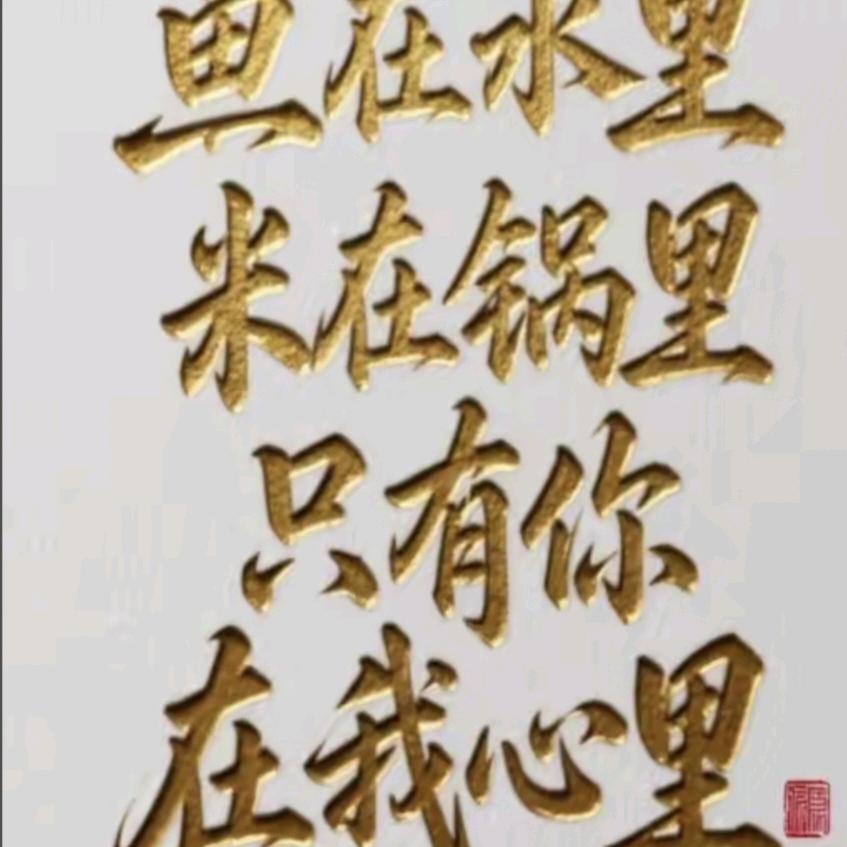 鱼在水里
米在锅里
只有你
在我心里